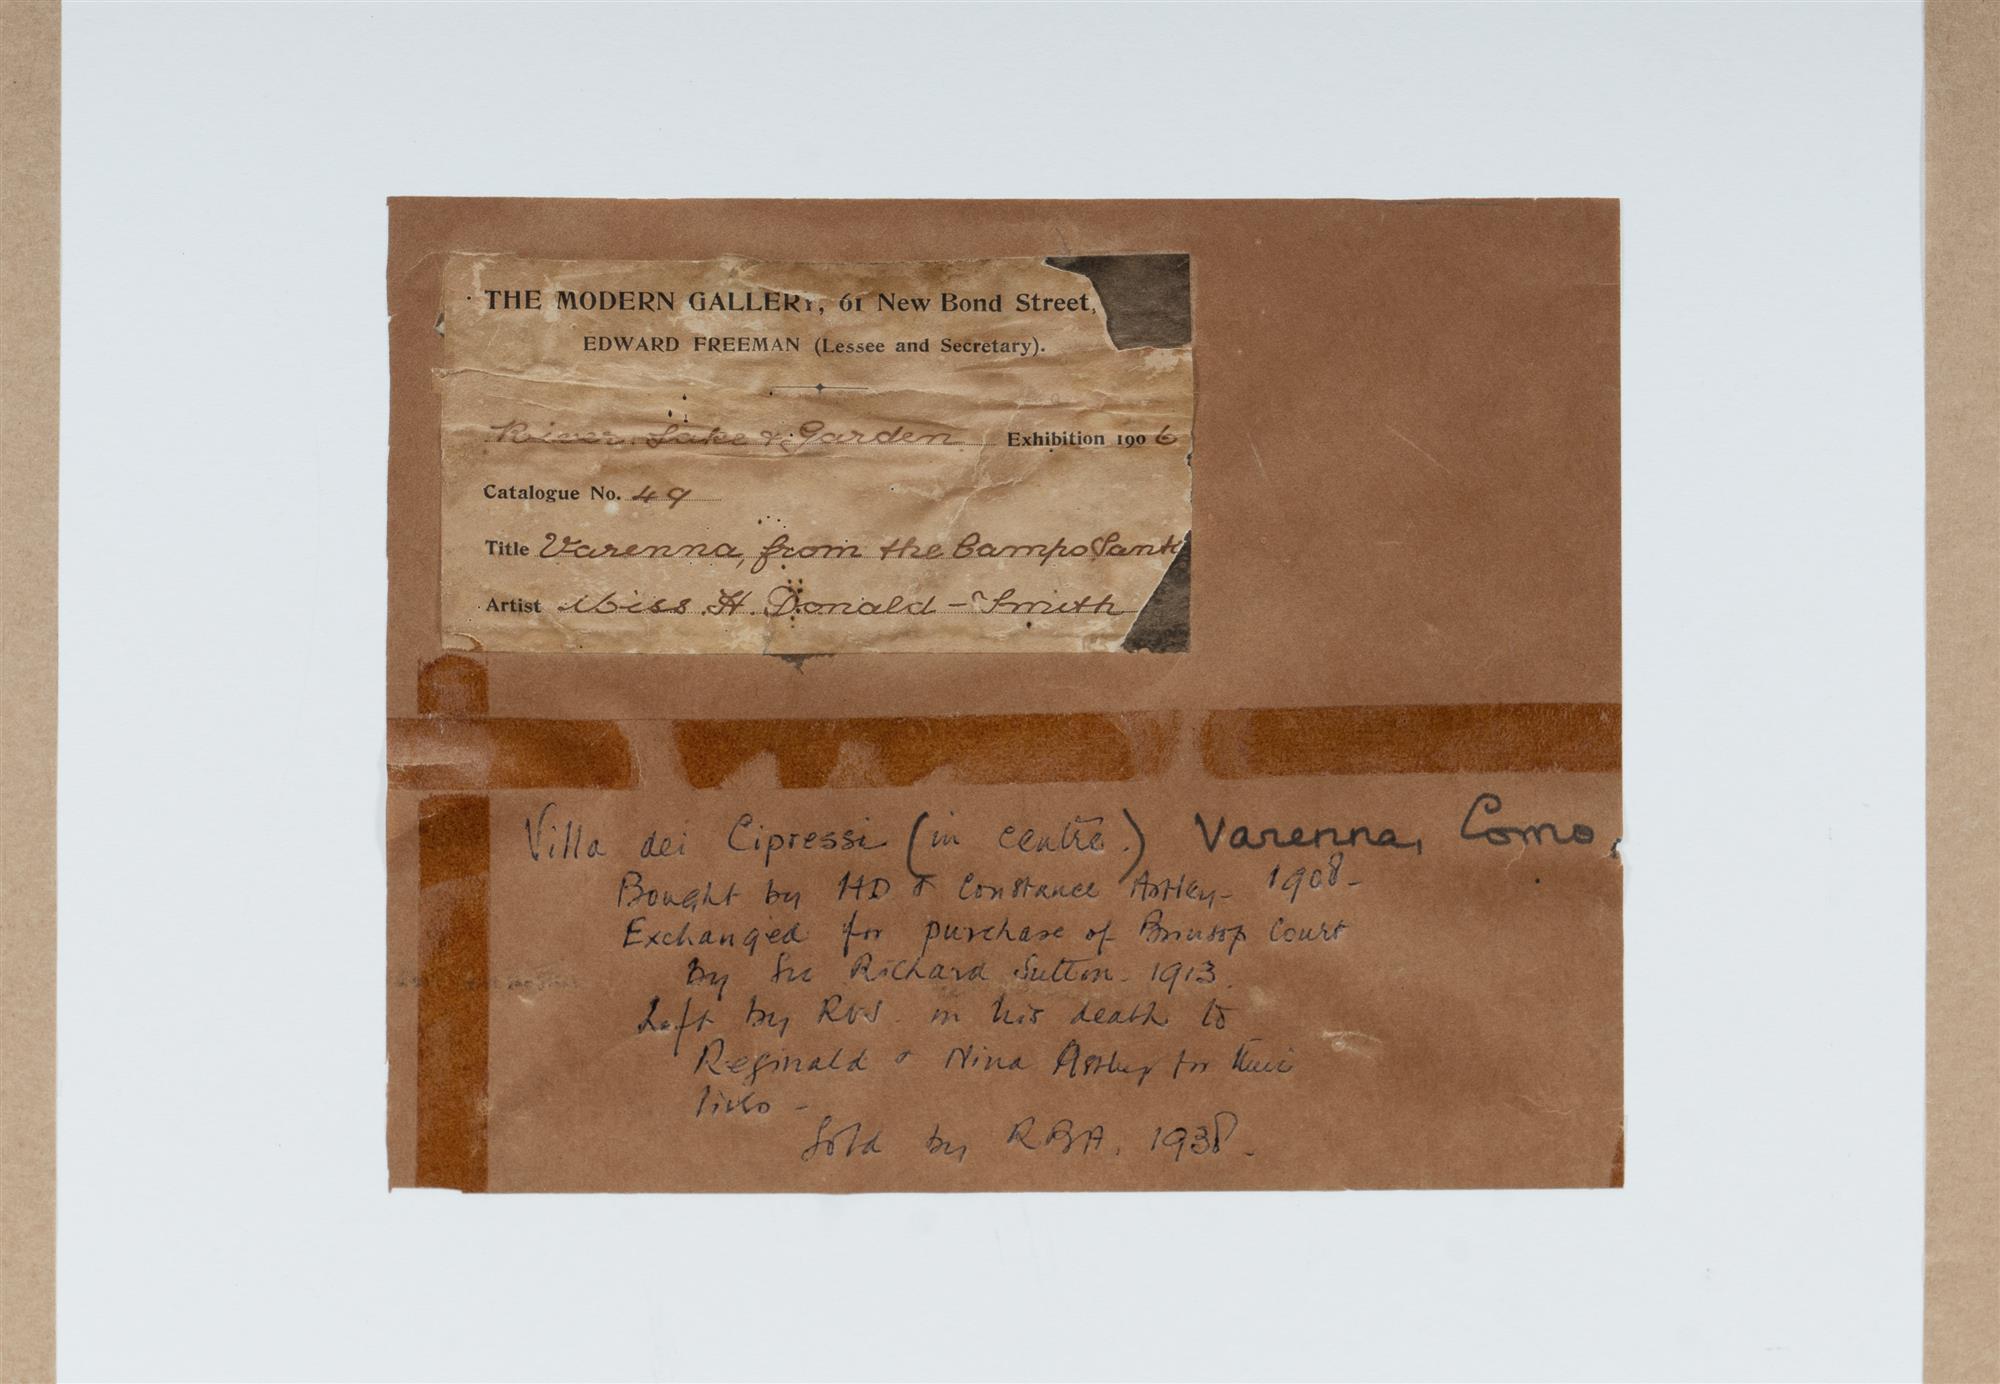 THE MODERN GALLERY, 61 New Bond Street,
EDWARD FREEMAN (Lessee and Secretary).
River, Lake & Garden Exhibition 1906
Catalogue No. 49
Title Varenna, from the Campo Santo
Artist Miss H. Donald-Smith
Villa dei Cipressi (in centre.) Varenna, Como.
Bought by HD & Constance Astley - 1908 -
Exchanged for purchase of Brinsop Court
by Sir Richard Sutton - 1913.
Left by RVS. on his death to
Reginald & Nina Astley for their
lives -
Sold by RBA. 1938 -